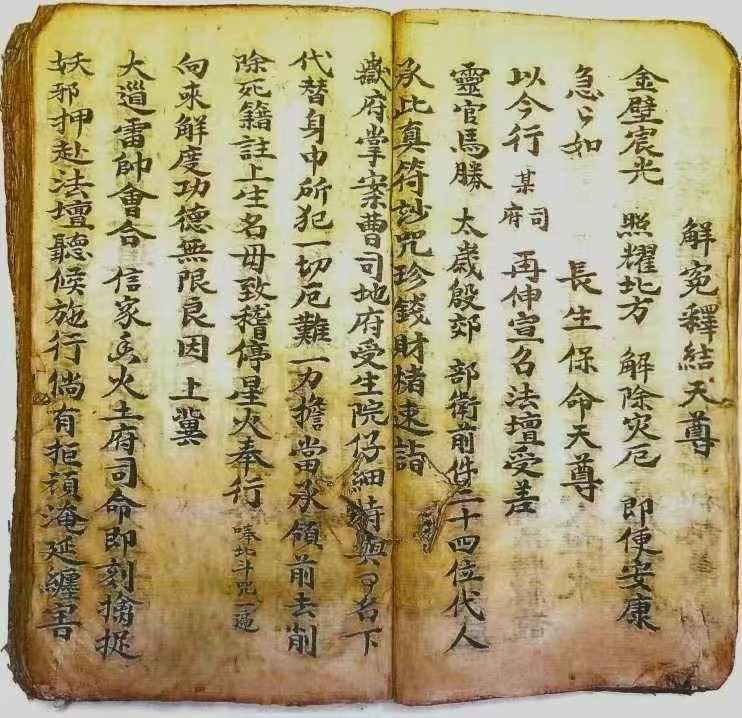 解寃釋結天尊
金壁宸光 照耀北方 解除灾厄 即便安康
急々如 長生保命天尊
以今行 某府司 再伸宣召法壇受差
靈官馬勝 太歲殷郊 部衛前件二十四位代人
承此真符妙咒珍錢財楮速詣
嶽府掌案曹司地府受生院仔細特與名下
代替身中所犯一切厄難一力擔當承領前去削
除死籍註上生名毋致稽停星火奉行 唪北斗咒一遍
向來解度功德無限良因上冀
大道雷帥會合 信家香火土府司命即刻擒捉
妖邪押赴法壇聽候施行倘有拒頑淹延纏害